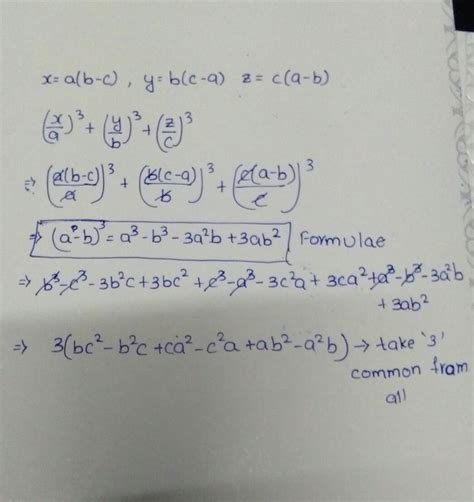 x = a(b-c) , y = b(c-a) z = c(a-b)
(x/a)³ + (y/b)³ + (z/c)³
⇒ (a(b-c)/a)³ + (b(c-a)/b)³ + (c(a-b)/c)³
⇒ (a-b)³ = a³-b³-3a²b+3ab² Formulae
⇒ b³-c³-3b²c+3bc²+c³-a³-3c²a+3ca²+a³-b³-3a²b
+3ab²
⇒ 3(bc²-b²c+ca²-c²a+ab²-a²b) → take '3'
common fram
all